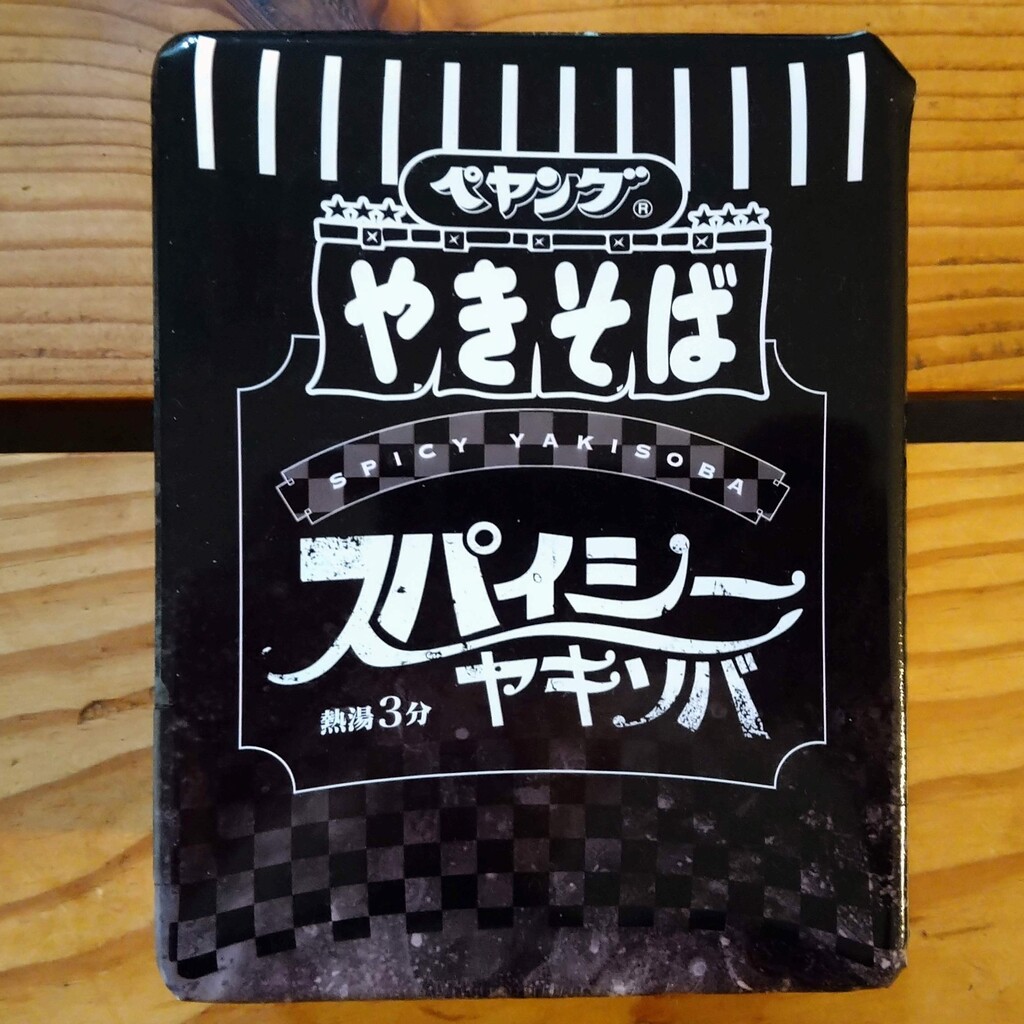 ペヤング®
やきそば
SPICY YAKISOBA
スパイシー
ヤキソバ
熱湯3分